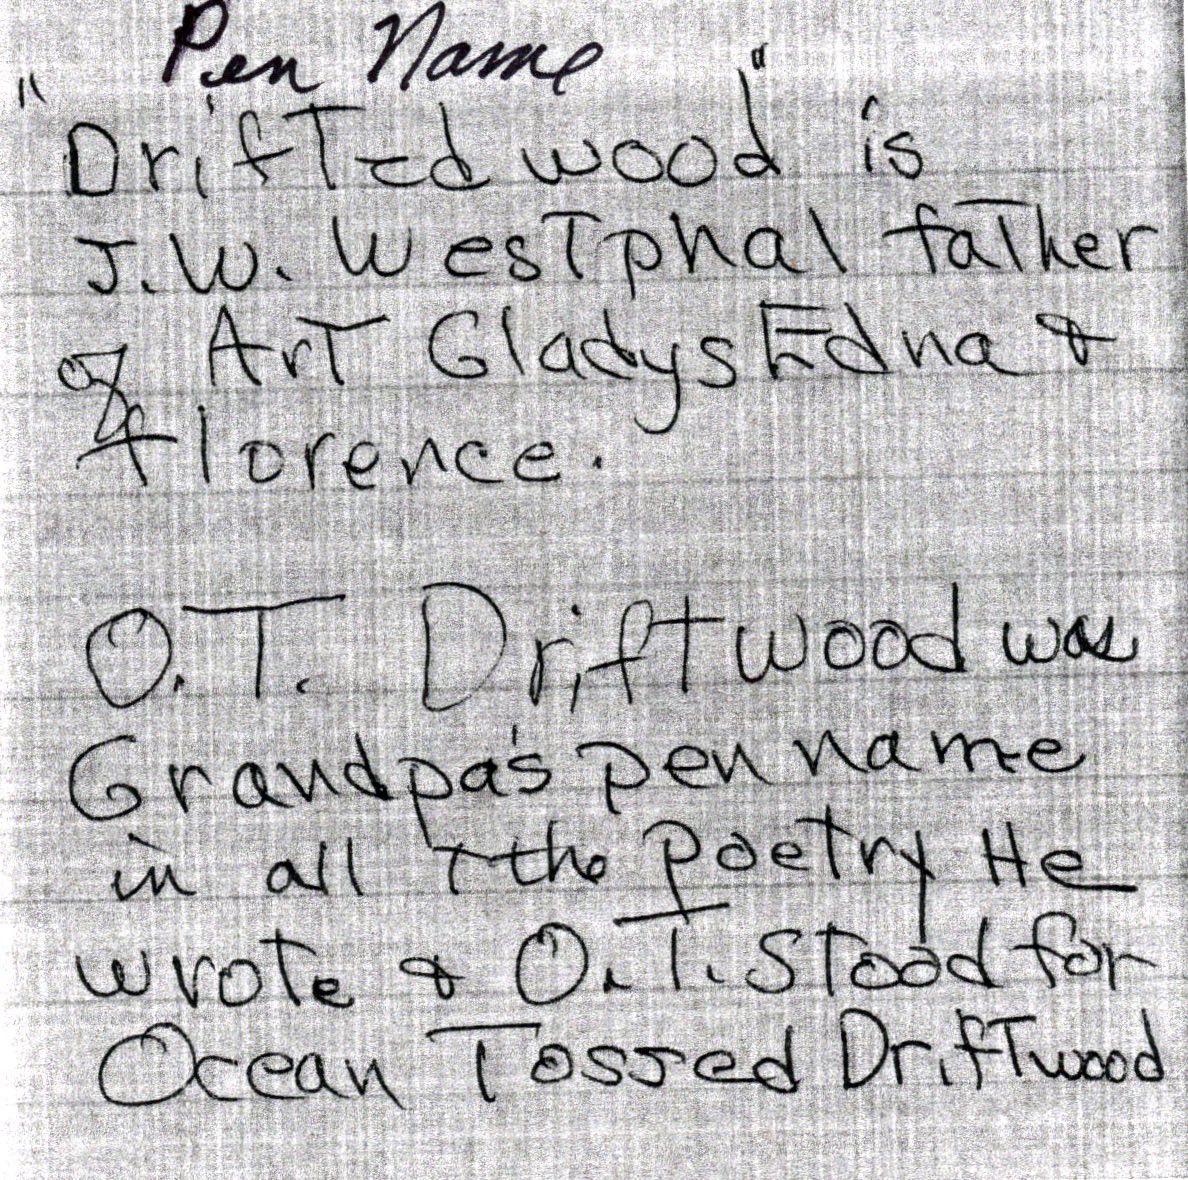 Pen Name
"Drifted wood" is
J.W. Westphal father
of Art Gladys Edna &
Florence.
O.T. Driftwood was
Grandpa's pen name
in all the poetry He
wrote & O.T. stood for
Ocean Tossed Driftwood